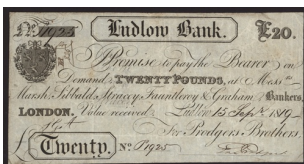 Ludlow Bank. £20.
I Promise to pay the Bearer on
Demand, TWENTY POUNDS, at Mess.rs
Marsh, Sibbald, Stracey, Fauntleroy & Graham, Bankers,
LONDON. Value received Ludlow 15 Sept.r 1819
For Prodgers Brothers.
Twenty. No.